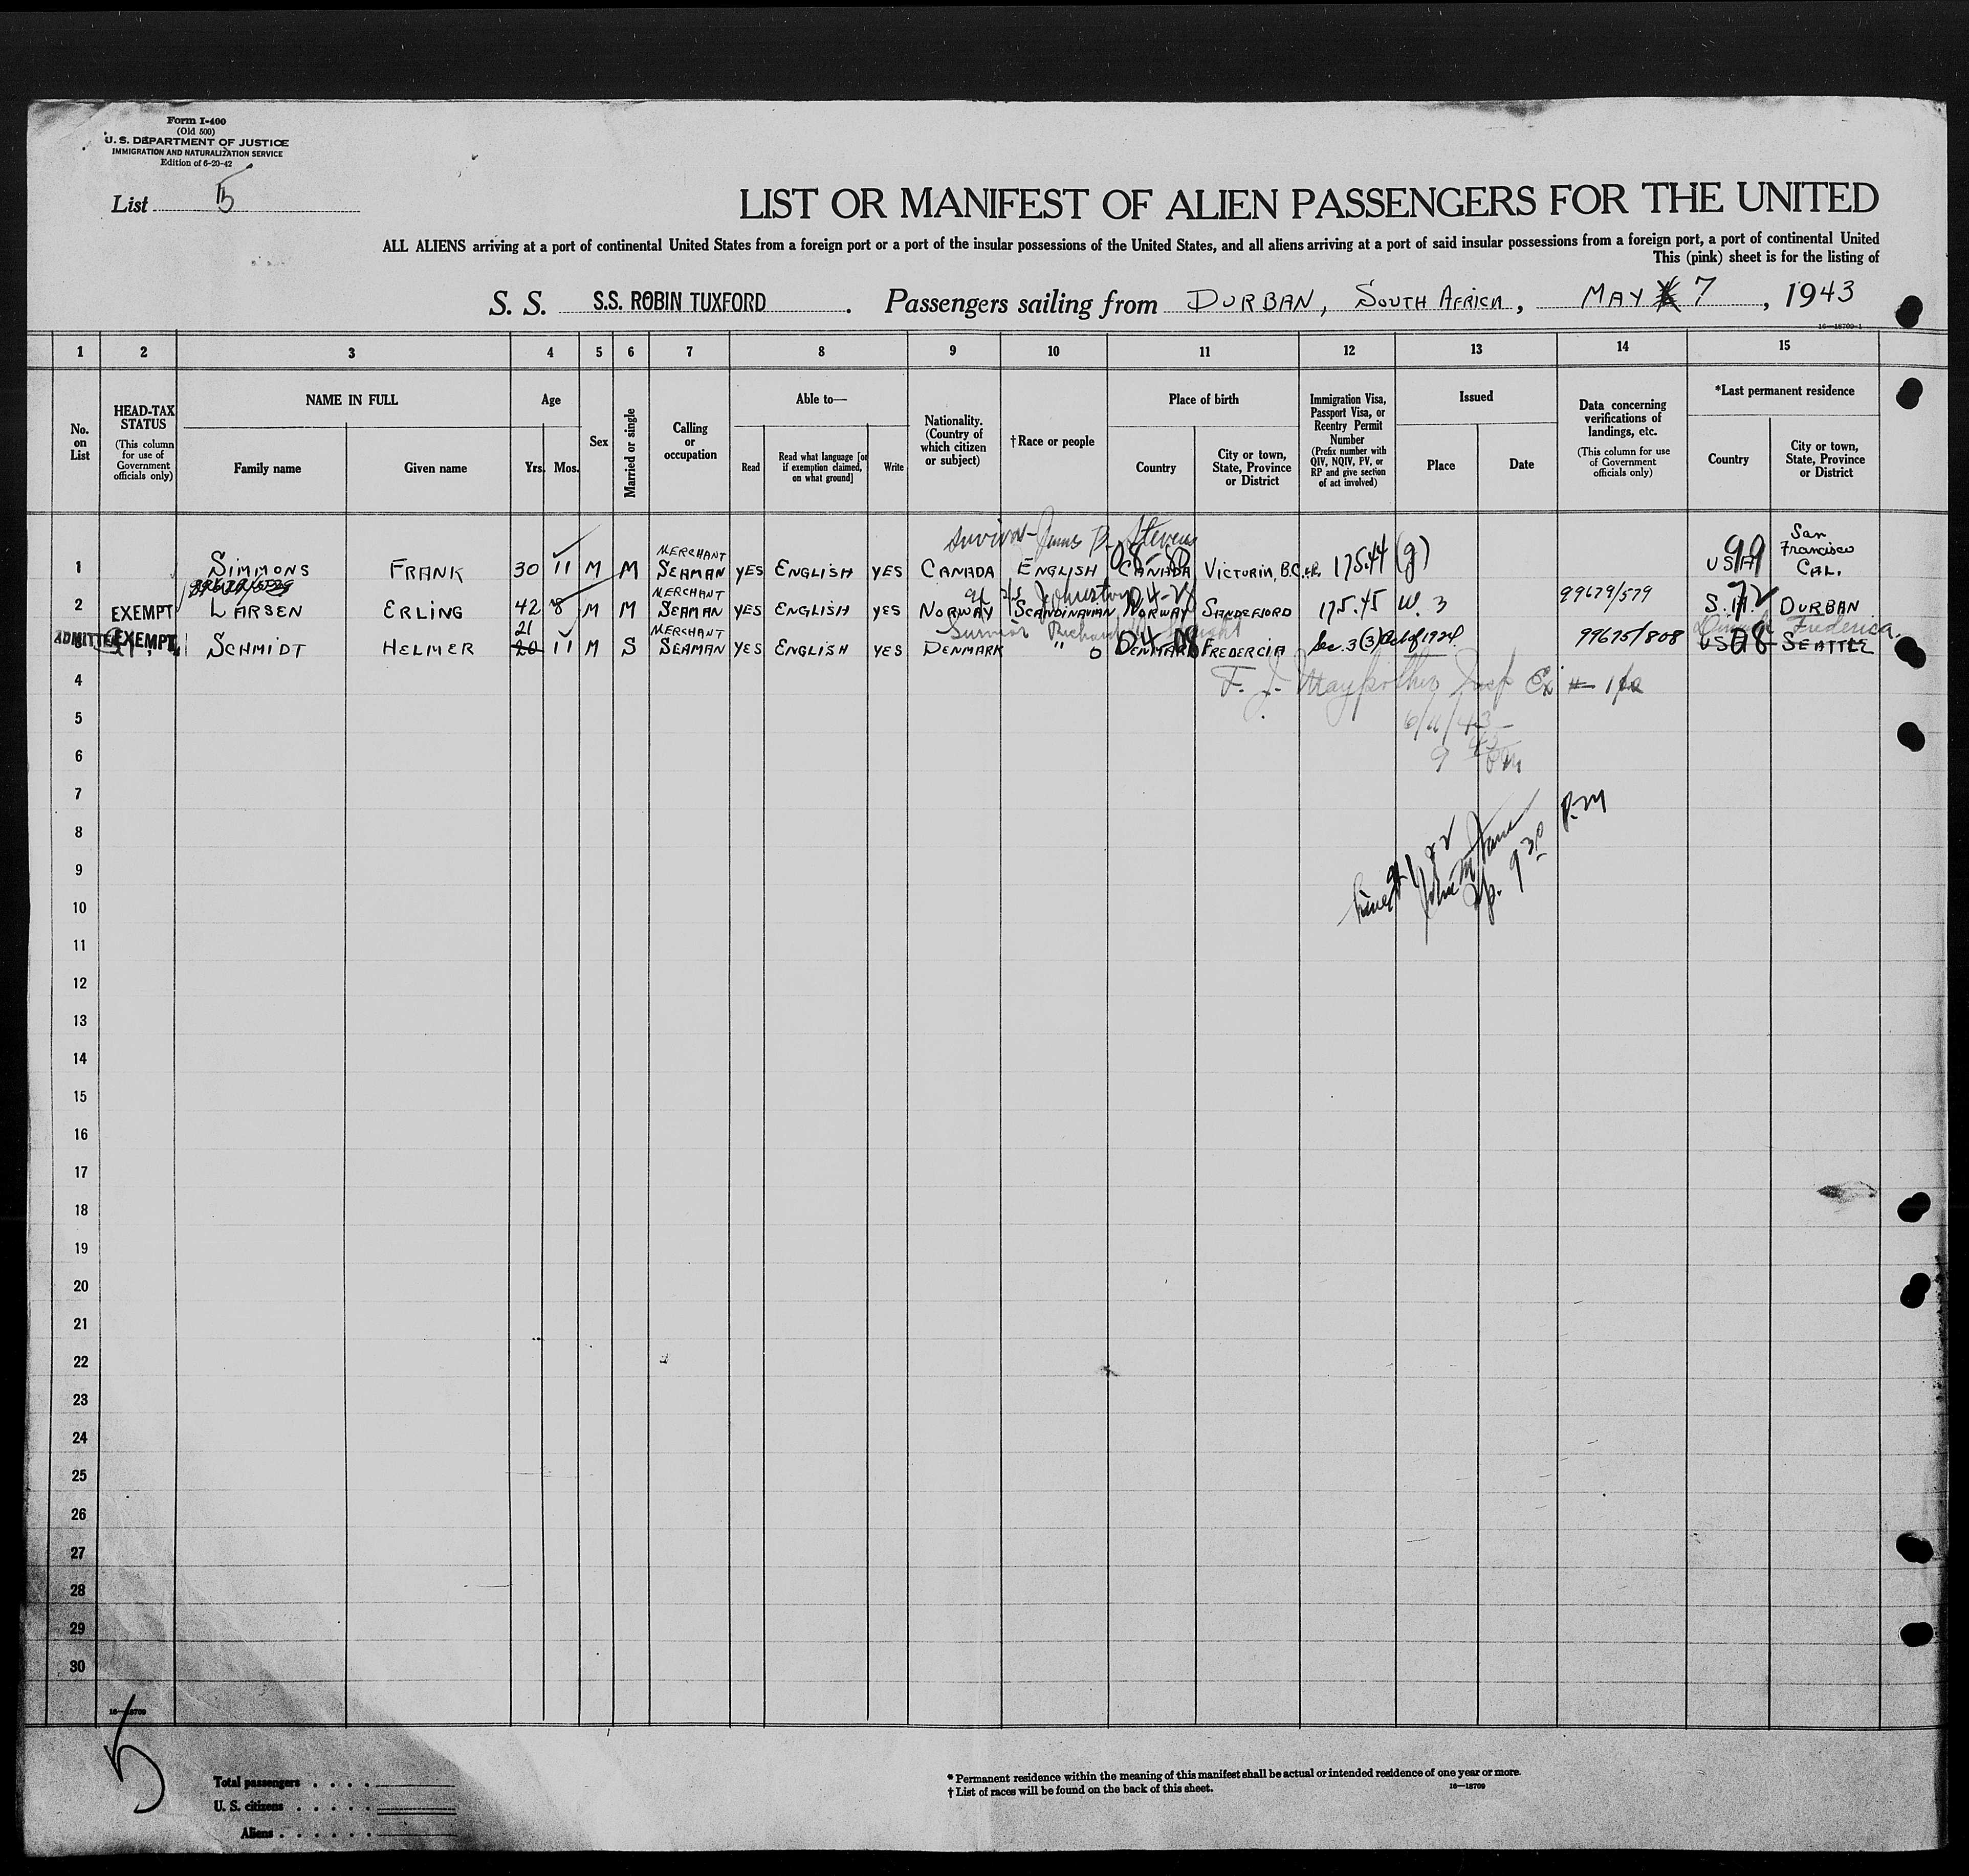 Form I-400
(Old 500)
U. S. DEPARTMENT OF JUSTICE
IMMIGRATION AND NATURALIZATION SERVICE
Edition of 6-20-42
List 5
LIST OR MANIFEST OF ALIEN PASSENGERS FOR THE UNITED
ALL ALIENS arriving at a port of continental United States from a foreign port or a port of the insular possessions of the United States, and all aliens arriving at a port of said insular possessions from a foreign port, a port of continental United
This (pink) sheet is for the listing of
S. S. S.S. ROBIN TUXFORD . Passengers sailing from DURBAN, SOUTH AFRICA, MAY 7, 1943
16—18709-1
1 2 3 4 5 6 7 8 9 10 11 12 13 14 15
No. on List
HEAD-TAX STATUS
(This column for use of Government officials only)
NAME IN FULL
Family name Given name
Age
Yrs. Mos.
Sex
Married or single
Calling or occupation
Able to—
Read Read what language [or if exemption claimed, on what ground] Write
Nationality. (Country of which citizen or subject)
†Race or people
Place of birth
Country City or town, State, Province or District
Immigration Visa, Passport Visa, or Reentry Permit Number
(Prefix number with QIV, NQIV, PV, or RP and give section of act involved)
Issued
Place Date
Data concerning verifications of landings, etc.
(This column for use of Government officials only)
*Last permanent residence
Country City or town, State, Province or District
Survivor - James B. Stevens
1 SIMMONS FRANK 30 11 M M MERCHANT SEAMAN YES ENGLISH YES CANADA ENGLISH CANADA 08-80 VICTORIA, B.C. 175.44 (g) USA 99 San Francisco CAL.
2 EXEMPT LARSEN ERLING 42 8 M M MERCHANT SEAMAN YES ENGLISH YES NORWAY SCANDINAVIAN NORWAY SANDEFJORD 175.45 W. 3 99679/579 S.A. 72 DURBAN
3 ADMITTED EXEMPT SCHMIDT HELMER 20 21 11 M S MERCHANT SEAMAN YES ENGLISH YES DENMARK " DENMARK FREDERCIA Sec. 3(3) Act of 1924 99675/808 USA 08 SEATTLE Fredericia
4 F. J. Maypother Insp Ex # 1
5 6/11/43
6 9 45
7
8
9
10
11
12
13
14
15
16
17
18
19
20
21
22
23
24
25
26
27
28
29
30
P.M
9 30
16—18709
5
Total passengers
U. S. citizens
Aliens
* Permanent residence within the meaning of this manifest shall be actual or intended residence of one year or more.
† List of races will be found on the back of this sheet.
16—18709